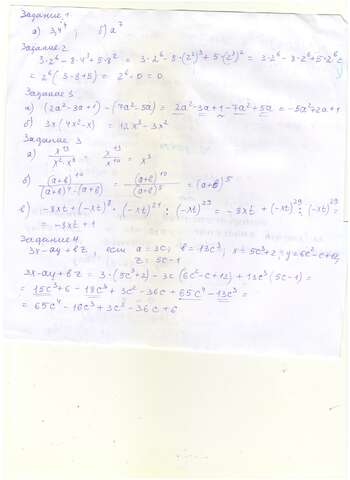 Задание 1
а) 3,4⁴, б) a⁷
Задание 2
3·2⁶ - 8·4³ + 5·8² = 3·2⁶ - 8·(2²)³ + 5·(2³)² = 3·2⁶ - 8·2⁶ + 5·2⁶ =
= 2⁶(3-8+5) = 2⁶·0 = 0
Задание 3
а) (2a² - 3a + 1) - (7a² - 5a) = 2a² - 3a + 1 - 7a² + 5a = -5a² + 2a + 1
б) 3x(4x² - x) = 12x³ - 3x²
Задание 3
а) x¹³/(x²·x⁸) = x¹³/x¹⁰ = x³
б) (a+b)¹⁰/((a+b)⁴·(a+b)) = (a+b)¹⁰/(a+b)⁵ = (a+b)⁵
в) -3xt + (-xt)⁸·(-xt)²¹ : (-xt)²⁹ = -3xt + (-xt)²⁹ : (-xt)²⁹ =
= -3xt + 1
Задание 4
3x - ay + bz, если a = 3c; b = 13c³; x = 5c³+2; y = 6c² - c + 12;
z = 5c - 1
3x - ay + bz = 3·(5c³+2) - 3c(6c² - c + 12) + 13c³(5c - 1) =
= 15c³ + 6 - 18c³ + 3c² - 36c + 65c⁴ - 13c³ =
= 65c⁴ - 16c³ + 3c² - 36c + 6